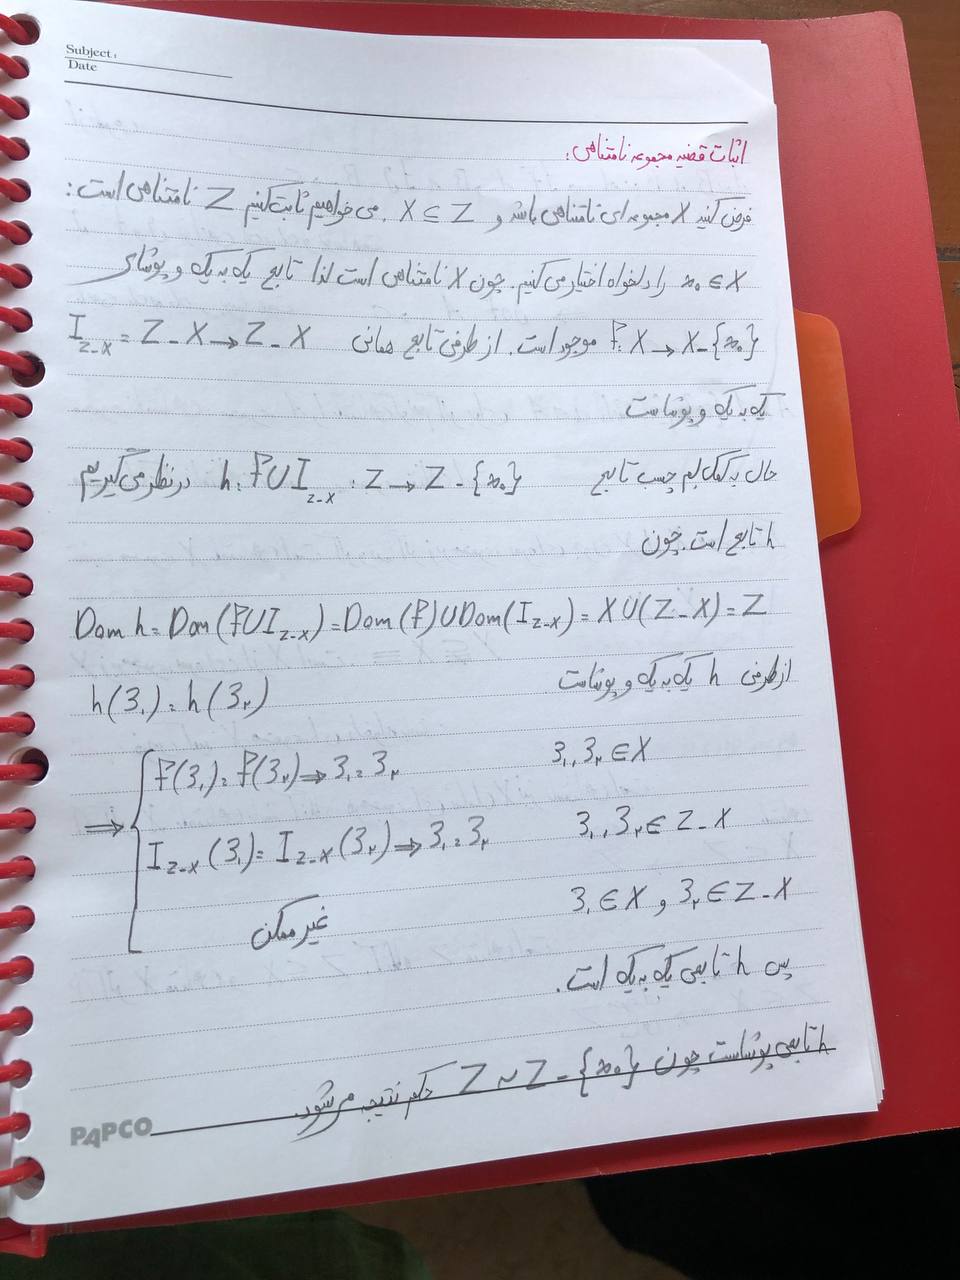 Subject:
Date
اثبات قضیه مجموعه نامتناهی:
فرض کنید X مجموعه ای نامتناهی باشد و X ⊆ Z. می خواهیم ثابت کنیم Z نامتناهی است:
x₀ ∈ X را دلخواه اختیار می کنیم. چون X نامتناهی است لذا تابع یک به یک و پوشای
f: X → X - {x₀} موجود است. از طرفی تابع همانی I_{Z-X} = Z - X → Z - X
یک به یک و پوشاست
حال به کمک لم چسب تابع h: f U I_{Z-X} : Z → Z - {x₀} در نظر می گیریم
h تابع است. چون
Dom h = Dom(f U I_{Z-X}) = Dom(f) U Dom(I_{Z-X}) = X U (Z - X) = Z
از طرفی h یک به یک و پوشاست h(z₁) = h(z₂)
⇒ { f(z₁) = f(z₂) ⇒ z₁ = z₂ z₁, z₂ ∈ X
I_{Z-X}(z₁) = I_{Z-X}(z₂) ⇒ z₁ = z₂ z₁, z₂ ∈ Z - X
غیر ممکن z₁ ∈ X و z₂ ∈ Z - X
پس h تابعی یک به یک است.
h تابعی پوشاست چون Z ~ Z - {x₀} حکم نتیجه می شود.
PAPCO